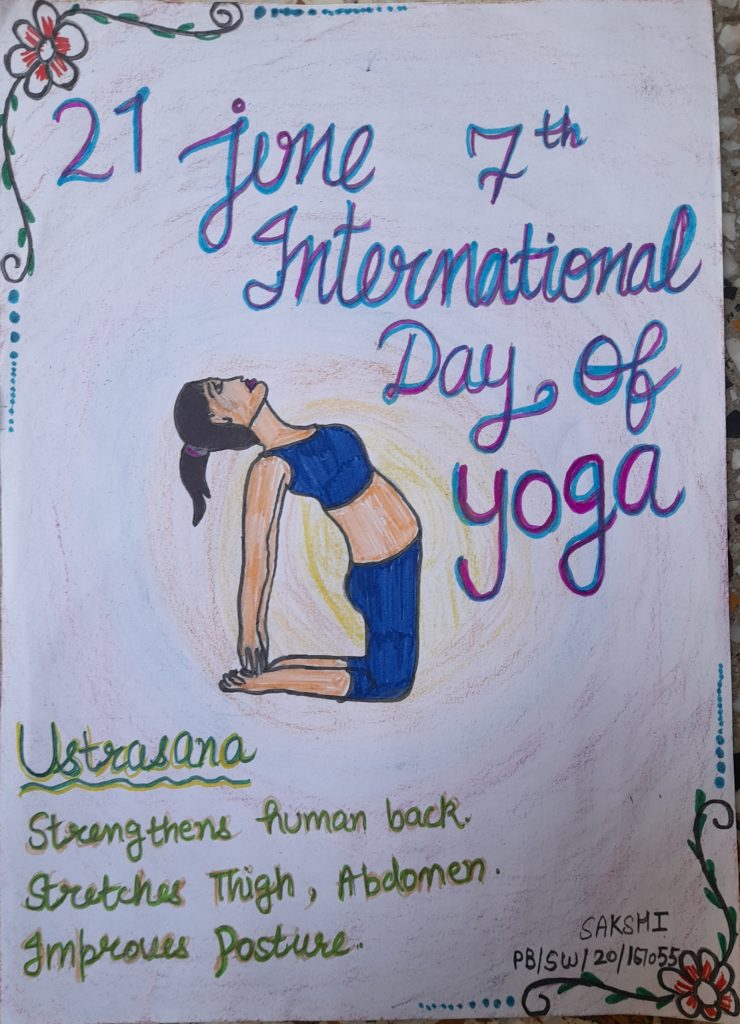 21 June 7th
International
Day of
Yoga
Ustrasana
Strengthens human back.
Stretches Thigh, Abdomen.
Improves Posture.
SAKSHI
PB/SW/20/167055